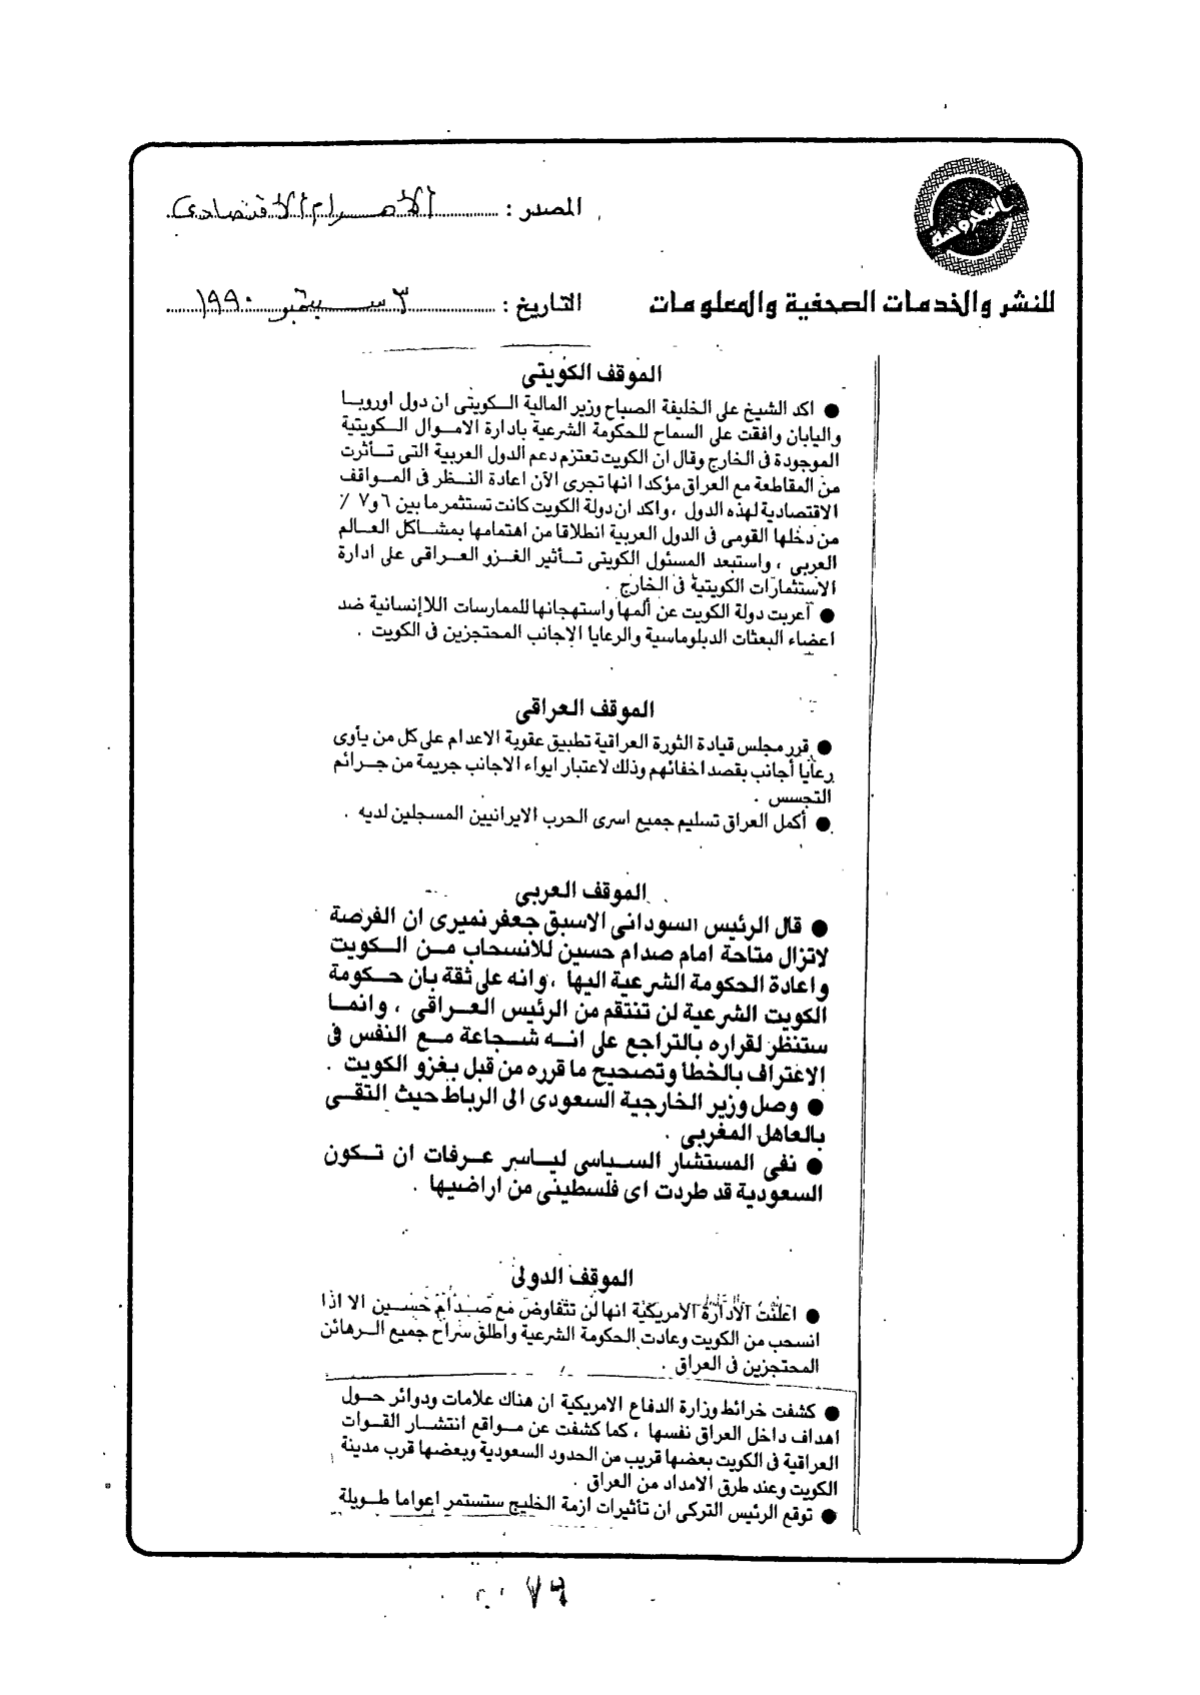 المحروسة
للنشر والخدمات الصحفية والمعلومات
المصدر : الأهرام الاقتصادى
التاريخ : ٣ سبتمبر ١٩٩٠
الموقف الكويتى
● اكد الشيخ على الخليفة الصباح وزير المالية الكويتى ان دول اوروبا
واليابان وافقت على السماح للحكومة الشرعية بادارة الاموال الكويتية
الموجودة فى الخارج وقال ان الكويت تعتزم دعم الدول العربية التى تأثرت
من المقاطعة مع العراق مؤكدا انها تجرى الآن اعادة النظر فى المواقف
الاقتصادية لهذه الدول ، واكد ان دولة الكويت كانت تستثمر ما بين ٦ و٧ ٪
من دخلها القومى فى الدول العربية انطلاقا من اهتمامها بمشاكل العالم
العربى ، واستبعد المسئول الكويتى تأثير الغزو العراقى على ادارة
الاستثمارات الكويتية فى الخارج .
● أعربت دولة الكويت عن ألمها واستهجانها للممارسات اللاإنسانية ضد
اعضاء البعثات الدبلوماسية والرعايا الاجانب المحتجزين فى الكويت .
الموقف العراقى
● قرر مجلس قيادة الثورة العراقية تطبيق عقوبة الاعدام على كل من يأوى
رعايا أجانب بقصد اخفائهم وذلك لاعتبار ايواء الاجانب جريمة من جرائم
التجسس .
● أكمل العراق تسليم جميع اسرى الحرب الايرانيين المسجلين لديه .
الموقف العربى
● قال الرئيس السودانى الاسبق جعفر نميرى ان الفرصة
لاتزال متاحة امام صدام حسين للانسحاب من الكويت
واعادة الحكومة الشرعية اليها ، وانه على ثقة بان حكومة
الكويت الشرعية لن تنتقم من الرئيس العراقى ، وانما
ستنظر لقراره بالتراجع على انه شجاعة مع النفس فى
الاعتراف بالخطأ وتصحيح ما قرره من قبل بغزو الكويت .
● وصل وزير الخارجية السعودى الى الرباط حيث التقى
بالعاهل المغربى .
● نفى المستشار السياسى لياسر عرفات ان تكون
السعودية قد طردت اى فلسطينى من اراضيها .
الموقف الدولى
● اعلنت الادارة الامريكية انها لن تتفاوض مع صدام حسين الا اذا
انسحب من الكويت وعادت الحكومة الشرعية واطلق سراح جميع الرهائن
المحتجزين فى العراق .
● كشفت خرائط وزارة الدفاع الامريكية ان هناك علامات ودوائر حول
اهداف داخل العراق نفسها ، كما كشفت عن مواقع انتشار القوات
العراقية فى الكويت بعضها قريب من الحدود السعودية وبعضها قرب مدينة
الكويت وعند طرق الامداد من العراق .
● توقع الرئيس التركى ان تأثيرات ازمة الخليج ستستمر اعواما طويلة